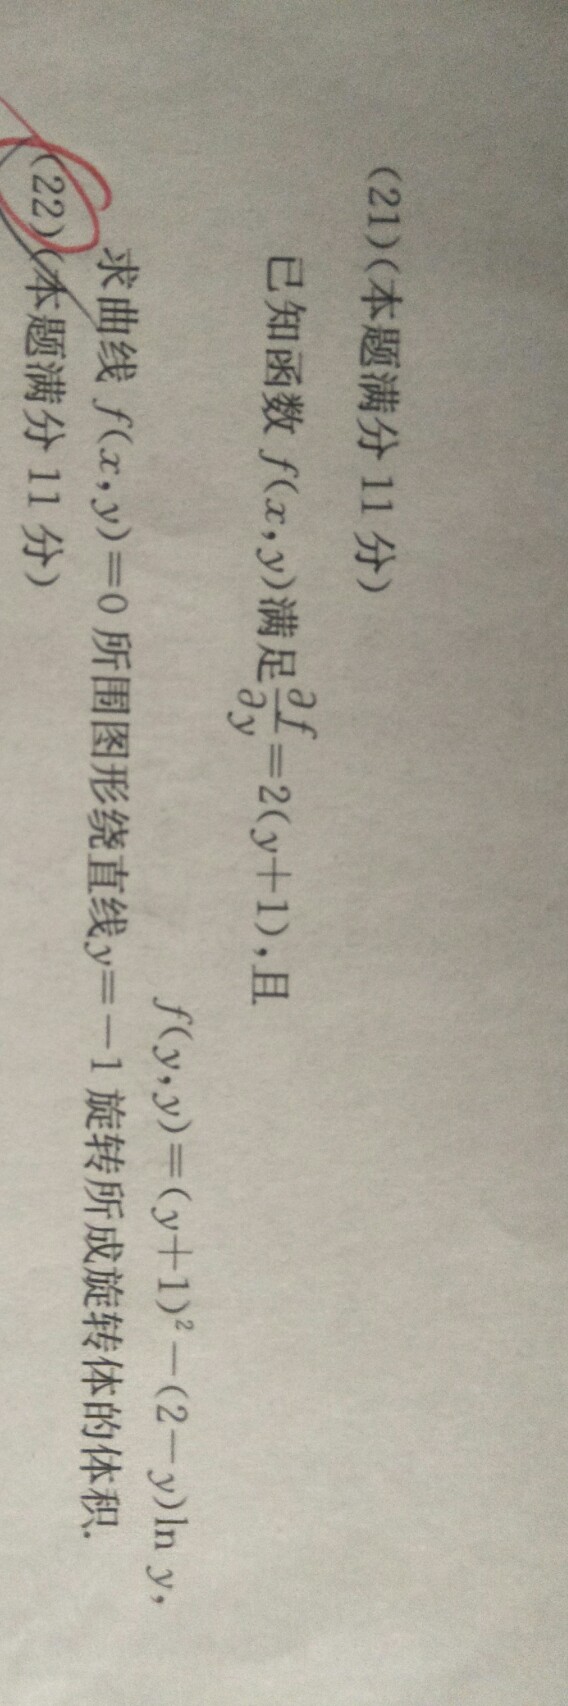 (21)(本题满分 11 分)
已知函数 f(x,y)满足∂f/∂y=2(y+1),且
f(y,y)=(y+1)²-(2-y)ln y,
求曲线 f(x,y)=0 所围图形绕直线y=-1 旋转所成旋转体的体积.
(22)(本题满分 11 分)